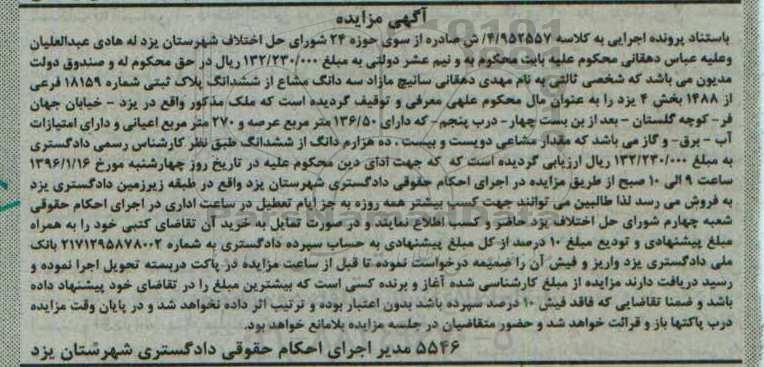 آگهی مزایده
باستناد پرونده اجرایی به کلاسه ۴/۹۵۲۵۵۷/ ش صادره از سوی حوزه ۲۴ شورای حل اختلاف شهرستان یزد له هادی عبدالعلیان
وعلیه عباس دهقانی محکوم علیه بابت محکوم به و نیم عشر دولتی به مبلغ ۱۳۲/۲۳۰/۰۰۰ ریال در حق محکوم له و صندوق دولت
مدیون می باشد که شخصی ثالثی به نام مهدی دهقانی سانیچ مازاد سه دانگ مشاع از ششدانگ پلاک ثبتی شماره ۱۸۱۵۹ فرعی
از ۱۴۸۸ بخش ۴ یزد را به عنوان مال محکوم علهی معرفی و توقیف گردیده است که ملک مذکور واقع در یزد - خیابان جهان
فر- کوچه گلستان - بعد از بن بست چهار- درب پنجم- که دارای ۱۳۶/۵۰ متر مربع عرصه و ۲۷۰ متر مربع اعیانی و دارای امتیازات
آب - برق- و گاز می باشد که مقدار مشاعی دویست و بیست ، ده هزارم دانگ از ششدانگ طبق نظر کارشناس رسمی دادگستری
به مبلغ ۱۳۲/۲۳۰/۰۰۰ ریال ارزیابی گردیده است که که جهت ادای دین محکوم علیه در تاریخ روز چهارشنبه مورخ ۱۳۹۶/۱/۱۶
ساعت ۹ الی ۱۰ صبح از طریق مزایده در اجرای احکام حقوقی دادگستری شهرستان یزد واقع در طبقه زیرزمین دادگستری یزد
به فروش می رسد لذا طالبین می توانند جهت کسب بیشتر همه روزه به جز ایام تعطیل در ساعت اداری در اجرای احکام حقوقی
شعبه چهارم شورای حل اختلاف یزد حاضر و کسب اطلاع نمایند و در صورت تمایل به خرید آن تقاضای کتبی خود را به همراه
مبلغ پیشنهادی و تودیع مبلغ ۱۰ درصد از کل مبلغ پیشنهادی به حساب سپرده دادگستری به شماره ۲۱۷۱۲۹۵۸۷۸۰۰۲ بانک
ملی دادگستری یزد واریز و فیش آن را ضمیمه درخواست نموده تا قبل از ساعت مزایده در پاکت دربسته تحویل اجرا نموده و
رسید دریافت دارند مزایده از مبلغ کارشناسی شده آغاز و برنده کسی است که بیشترین مبلغ را در تقاضای خود پیشنهاد داده
باشد و ضمنا تقاضایی که فاقد فیش ۱۰ درصد سپرده باشد بدون اعتبار بوده و ترتیب اثر داده نخواهد شد و در پایان وقت مزایده
درب پاکتها باز و قرائت خواهد شد و حضور متقاضیان در جلسه مزایده بلامانع خواهد بود.
۵۵۴۶ مدیر اجرای احکام حقوقی دادگستری شهرستان یزد